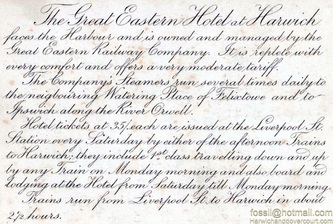 The Great Eastern Hotel at Harwich
faces the Harbour and is owned and managed by the
Great Eastern Railway Company. It is replete with
every comfort and offers a very moderate tariff.
The Company's Steamers run several times daily to
the neigbouring Watering Place of Felixtowe and to
Ipswich along the River Orwell.
Hotel tickets at 35/ each are issued at the Liverpool St
Station every Saturday by either of the afternoon Trains
to Harwich; they include 1st class travelling down and up
by any Train on Monday morning and also board and
lodging at the Hotel from Saturday till Monday morning.
Trains run from Liverpool St to Harwich in about
2½ hours.
fossil@hotmail.
Harwichanddovercourt.com